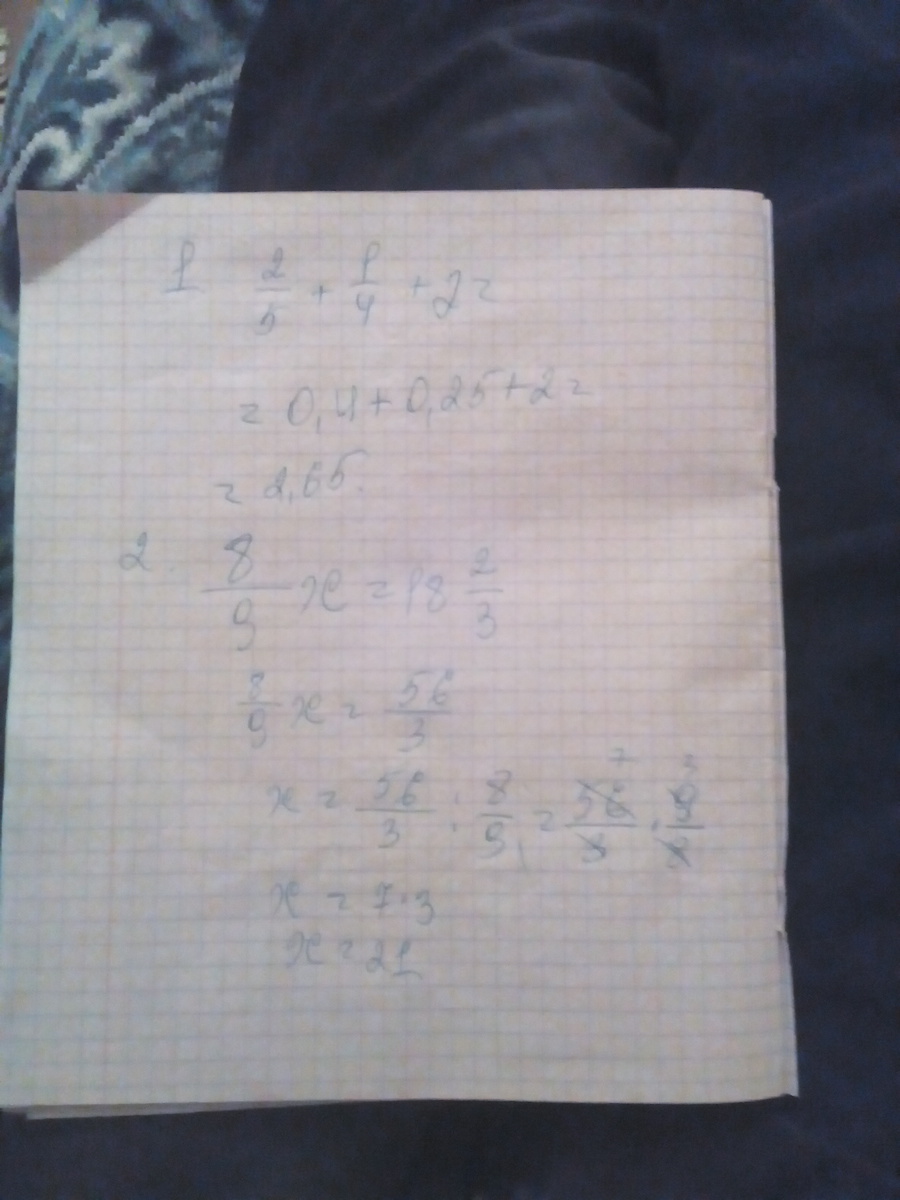 1 2/5 + 1/4 + 2 =
= 0,4 + 0,25 + 2 =
= 2,65.
2. 8/9 x = 18 2/3
8/9 x = 56/3
x = 56/3 : 8/9 = 56/3 · 9/8
x = 7·3
x = 21